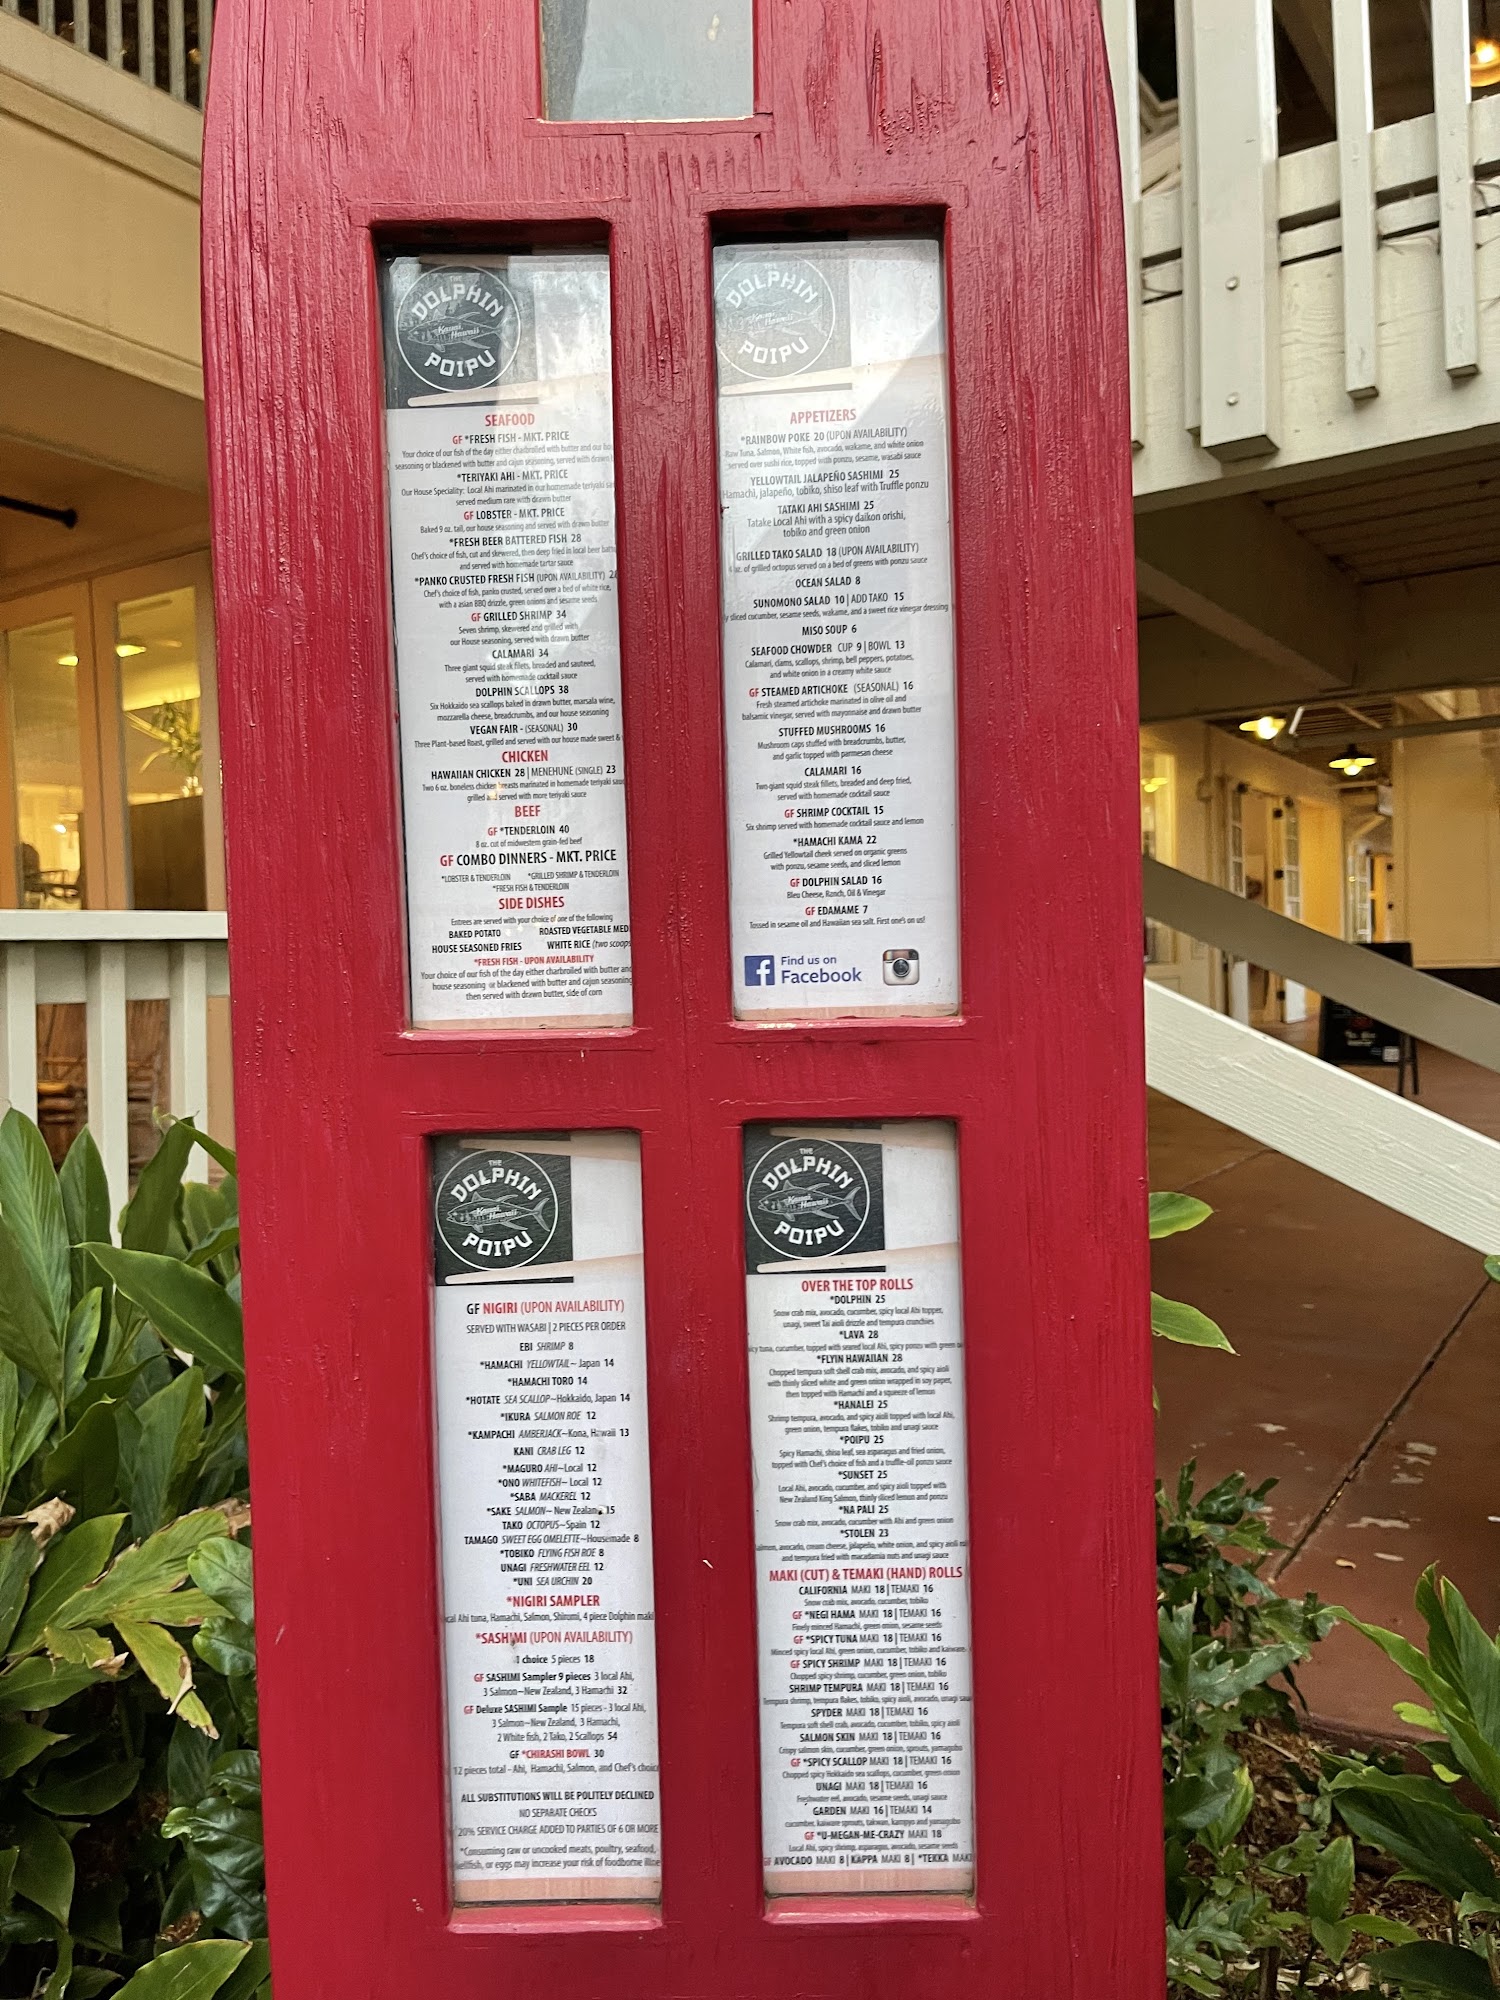 THE
DOLPHIN
Kauai
Hawaii
POIPU
SEAFOOD
GF *FRESH FISH - MKT. PRICE
Your choice of our fish of the day either charbroiled with butter and our
seasoning or blackened with butter and cajun seasoning, served with drawn
*TERIYAKI AHI - MKT. PRICE
Our House Speciality: Local Ahi marinated in our homemade teriyaki
served medium rare with drawn butter
GF LOBSTER - MKT. PRICE
Baked 9 oz. tail, our house seasoning and served with drawn butter
*FRESH BEER BATTERED FISH 28
Chef's choice of fish, cut and skewered, then deep fried in local beer
and served with homemade tartar sauce
*PANKO CRUSTED FRESH FISH (UPON AVAILABILITY)
Chef's choice of fish, panko crusted, served over a bed of white rice,
with a asian BBQ drizzle, green onions and sesame seeds
GF GRILLED SHRIMP 34
Seven shrimp, skewered and grilled with
our House seasoning, served with drawn butter
CALAMARI 34
Three giant squid steak filets, breaded and sauteed,
served with homemade cocktail sauce
DOLPHIN SCALLOPS 38
Six Hokkaido sea scallops baked in drawn butter, marsala wine,
mozzarella cheese, breadcrumbs, and our house seasoning
VEGAN FAIR - (SEASONAL) 30
Three Plant-based Roast, grilled and served with our house made sweet &
CHICKEN
HAWAIIAN CHICKEN 28 | MENEHUNE (SINGLE) 23
Two 6 oz. boneless chicken breasts marinated in homemade teriyaki
grilled and served with more teriyaki sauce
BEEF
GF *TENDERLOIN 40
8 oz. cut of midwestern grain-fed beef
GF COMBO DINNERS - MKT. PRICE
*LOBSTER & TENDERLOIN *GRILLED SHRIMP & TENDERLOIN
*FRESH FISH & TENDERLOIN
SIDE DISHES
Entrees are served with your choice of one of the following
BAKED POTATO ROASTED VEGETABLE
HOUSE SEASONED FRIES WHITE RICE (two scoops
*FRESH FISH - UPON AVAILABILITY
Your choice of our fish of the day either charbroiled with butter and
house seasoning or blackened with butter and cajun seasoning
then served with drawn butter, side of corn
THE
DOLPHIN
Kauai
Hawaii
POIPU
APPETIZERS
*RAINBOW POKE 20 (UPON AVAILABILITY)
Raw Tuna, Salmon, White fish, avocado, wakame, and white onion
served over sushi rice, topped with ponzu, sesame, wasabi sauce
YELLOWTAIL JALAPEÑO SASHIMI 25
Hamachi, jalapeño, tobiko, shiso leaf with Truffle ponzu
TATAKI AHI SASHIMI 25
Tatake Local Ahi with a spicy daikon orishi,
tobiko and green onion
GRILLED TAKO SALAD 18 (UPON AVAILABILITY)
oz. of grilled octopus served on a bed of greens with ponzu sauce
OCEAN SALAD 8
SUNOMONO SALAD 10 | ADD TAKO 15
sliced cucumber, sesame seeds, wakame, and a sweet rice vinegar dressing
MISO SOUP 6
SEAFOOD CHOWDER CUP 9 | BOWL 13
Calamari, clams, scallops, shrimp, bell peppers, potatoes,
and white onion in a creamy white sauce
GF STEAMED ARTICHOKE (SEASONAL) 16
Fresh steamed artichoke marinated in olive oil and
balsamic vinegar, served with mayonnaise and drawn butter
STUFFED MUSHROOMS 16
Mushroom caps stuffed with breadcrumbs, butter,
and garlic topped with parmesan cheese
CALAMARI 16
Two giant squid steak fillets, breaded and deep fried,
served with homemade cocktail sauce
GF SHRIMP COCKTAIL 15
Six shrimp served with homemade cocktail sauce and lemon
*HAMACHI KAMA 22
Grilled Yellowtail cheek served on organic greens
with ponzu, sesame seeds, and sliced lemon
GF DOLPHIN SALAD 16
Bleu Cheese, Ranch, Oil & Vinegar
GF EDAMAME 7
Tossed in sesame oil and Hawaiian sea salt. First one's on us!
Find us on
Facebook
THE
DOLPHIN
Kauai
Hawaii
POIPU
GF NIGIRI (UPON AVAILABILITY)
SERVED WITH WASABI | 2 PIECES PER ORDER
EBI SHRIMP 8
*HAMACHI YELLOWTAIL~ Japan 14
*HAMACHI TORO 14
*HOTATE SEA SCALLOP~Hokkaido, Japan 14
*IKURA SALMON ROE 12
*KAMPACHI AMBERJACK~Kona, Hawaii 13
KANI CRAB LEG 12
*MAGURO AHI~Local 12
*ONO WHITEFISH~ Local 12
*SABA MACKEREL 12
*SAKE SALMON~ New Zealand 15
TAKO OCTOPUS~Spain 12
TAMAGO SWEET EGG OMELETTE~Housemade 8
*TOBIKO FLYING FISH ROE 8
UNAGI FRESHWATER EEL 12
*UNI SEA URCHIN 20
*NIGIRI SAMPLER
Ahi tuna, Hamachi, Salmon, Shiromi, 4 piece Dolphin maki
*SASHIMI (UPON AVAILABILITY)
1 choice 5 pieces 18
GF SASHIMI Sampler 9 pieces 3 local Ahi,
3 Salmon~New Zealand, 3 Hamachi 32
GF Deluxe SASHIMI Sample 15 pieces - 3 local Ahi,
3 Salmon~New Zealand, 3 Hamachi,
2 White fish, 2 Tako, 2 Scallops 54
GF *CHIRASHI BOWL 30
12 pieces total - Ahi, Hamachi, Salmon, and Chef's choice
ALL SUBSTITUTIONS WILL BE POLITELY DECLINED
NO SEPARATE CHECKS
20% SERVICE CHARGE ADDED TO PARTIES OF 6 OR MORE
*Consuming raw or uncooked meats, poultry, seafood,
or eggs may increase your risk of foodborne
THE
DOLPHIN
Kauai
Hawaii
POIPU
OVER THE TOP ROLLS
*DOLPHIN 25
Snow crab mix, avocado, cucumber, spicy local Ahi topper,
unagi, sweet Tai aioli drizzle and tempura crunchies
*LAVA 28
tuna, cucumber, topped with seared local Ahi, spicy ponzu with green
*FLYIN HAWAIIAN 28
Chopped tempura soft shell crab mix, avocado, and spicy aioli
with thinly sliced white and green onion wrapped in soy paper,
then topped with Hamachi and a squeeze of lemon
*HANALEI 25
Shrimp tempura, avocado, and spicy aioli topped with local Ahi,
green onion, tempura flakes, tobiko and unagi sauce
*POIPU 25
Spicy Hamachi, shiso leaf, sea asparagus and fried onion,
topped with Chef's choice of fish and a truffle-oil ponzu sauce
*SUNSET 25
Local Ahi, avocado, cucumber, and spicy aioli topped with
New Zealand King Salmon, thinly sliced lemon and ponzu
*NA PALI 25
Snow crab mix, avocado, cucumber with Ahi and green onion
*STOLEN 23
avocado, cream cheese, jalapeño, white onion, and spicy aioli
and tempura fried with macadamia nuts and unagi sauce
MAKI (CUT) & TEMAKI (HAND) ROLLS
CALIFORNIA MAKI 18 | TEMAKI 16
Snow crab mix, avocado, cucumber, tobiko
GF *NEGI HAMA MAKI 18 | TEMAKI 16
Finely minced Hamachi, green onion, sesame seeds
GF *SPICY TUNA MAKI 18 | TEMAKI 16
Minced spicy local Ahi, green onion, cucumber, tobiko and kaiware
GF SPICY SHRIMP MAKI 18 | TEMAKI 16
Chopped spicy shrimp, cucumber, green onion, tobiko
SHRIMP TEMPURA MAKI 18 | TEMAKI 16
Tempura shrimp, tempura flakes, tobiko, spicy aioli, avocado, unagi
SPYDER MAKI 18 | TEMAKI 16
Tempura soft shell crab, avocado, cucumber, tobiko, spicy aioli
SALMON SKIN MAKI 18 | TEMAKI 16
Crispy salmon skin, cucumber, green onion, sprouts, yamagobo
GF *SPICY SCALLOP MAKI 18 | TEMAKI 16
Chopped spicy Hokkaido sea scallops, cucumber, green onion
UNAGI MAKI 18 | TEMAKI 16
Freshwater eel, avocado, sesame seeds, unagi sauce
GARDEN MAKI 16 | TEMAKI 14
cucumber, kaiware sprouts, takwan, kampyo and yamagobo
GF *U-MEGAN-ME-CRAZY MAKI 18
Local Ahi, spicy shrimp, asparagus, avocado, sesame seeds
GF AVOCADO MAKI 8 | KAPPA MAKI 8 | *TEKKA MAKI